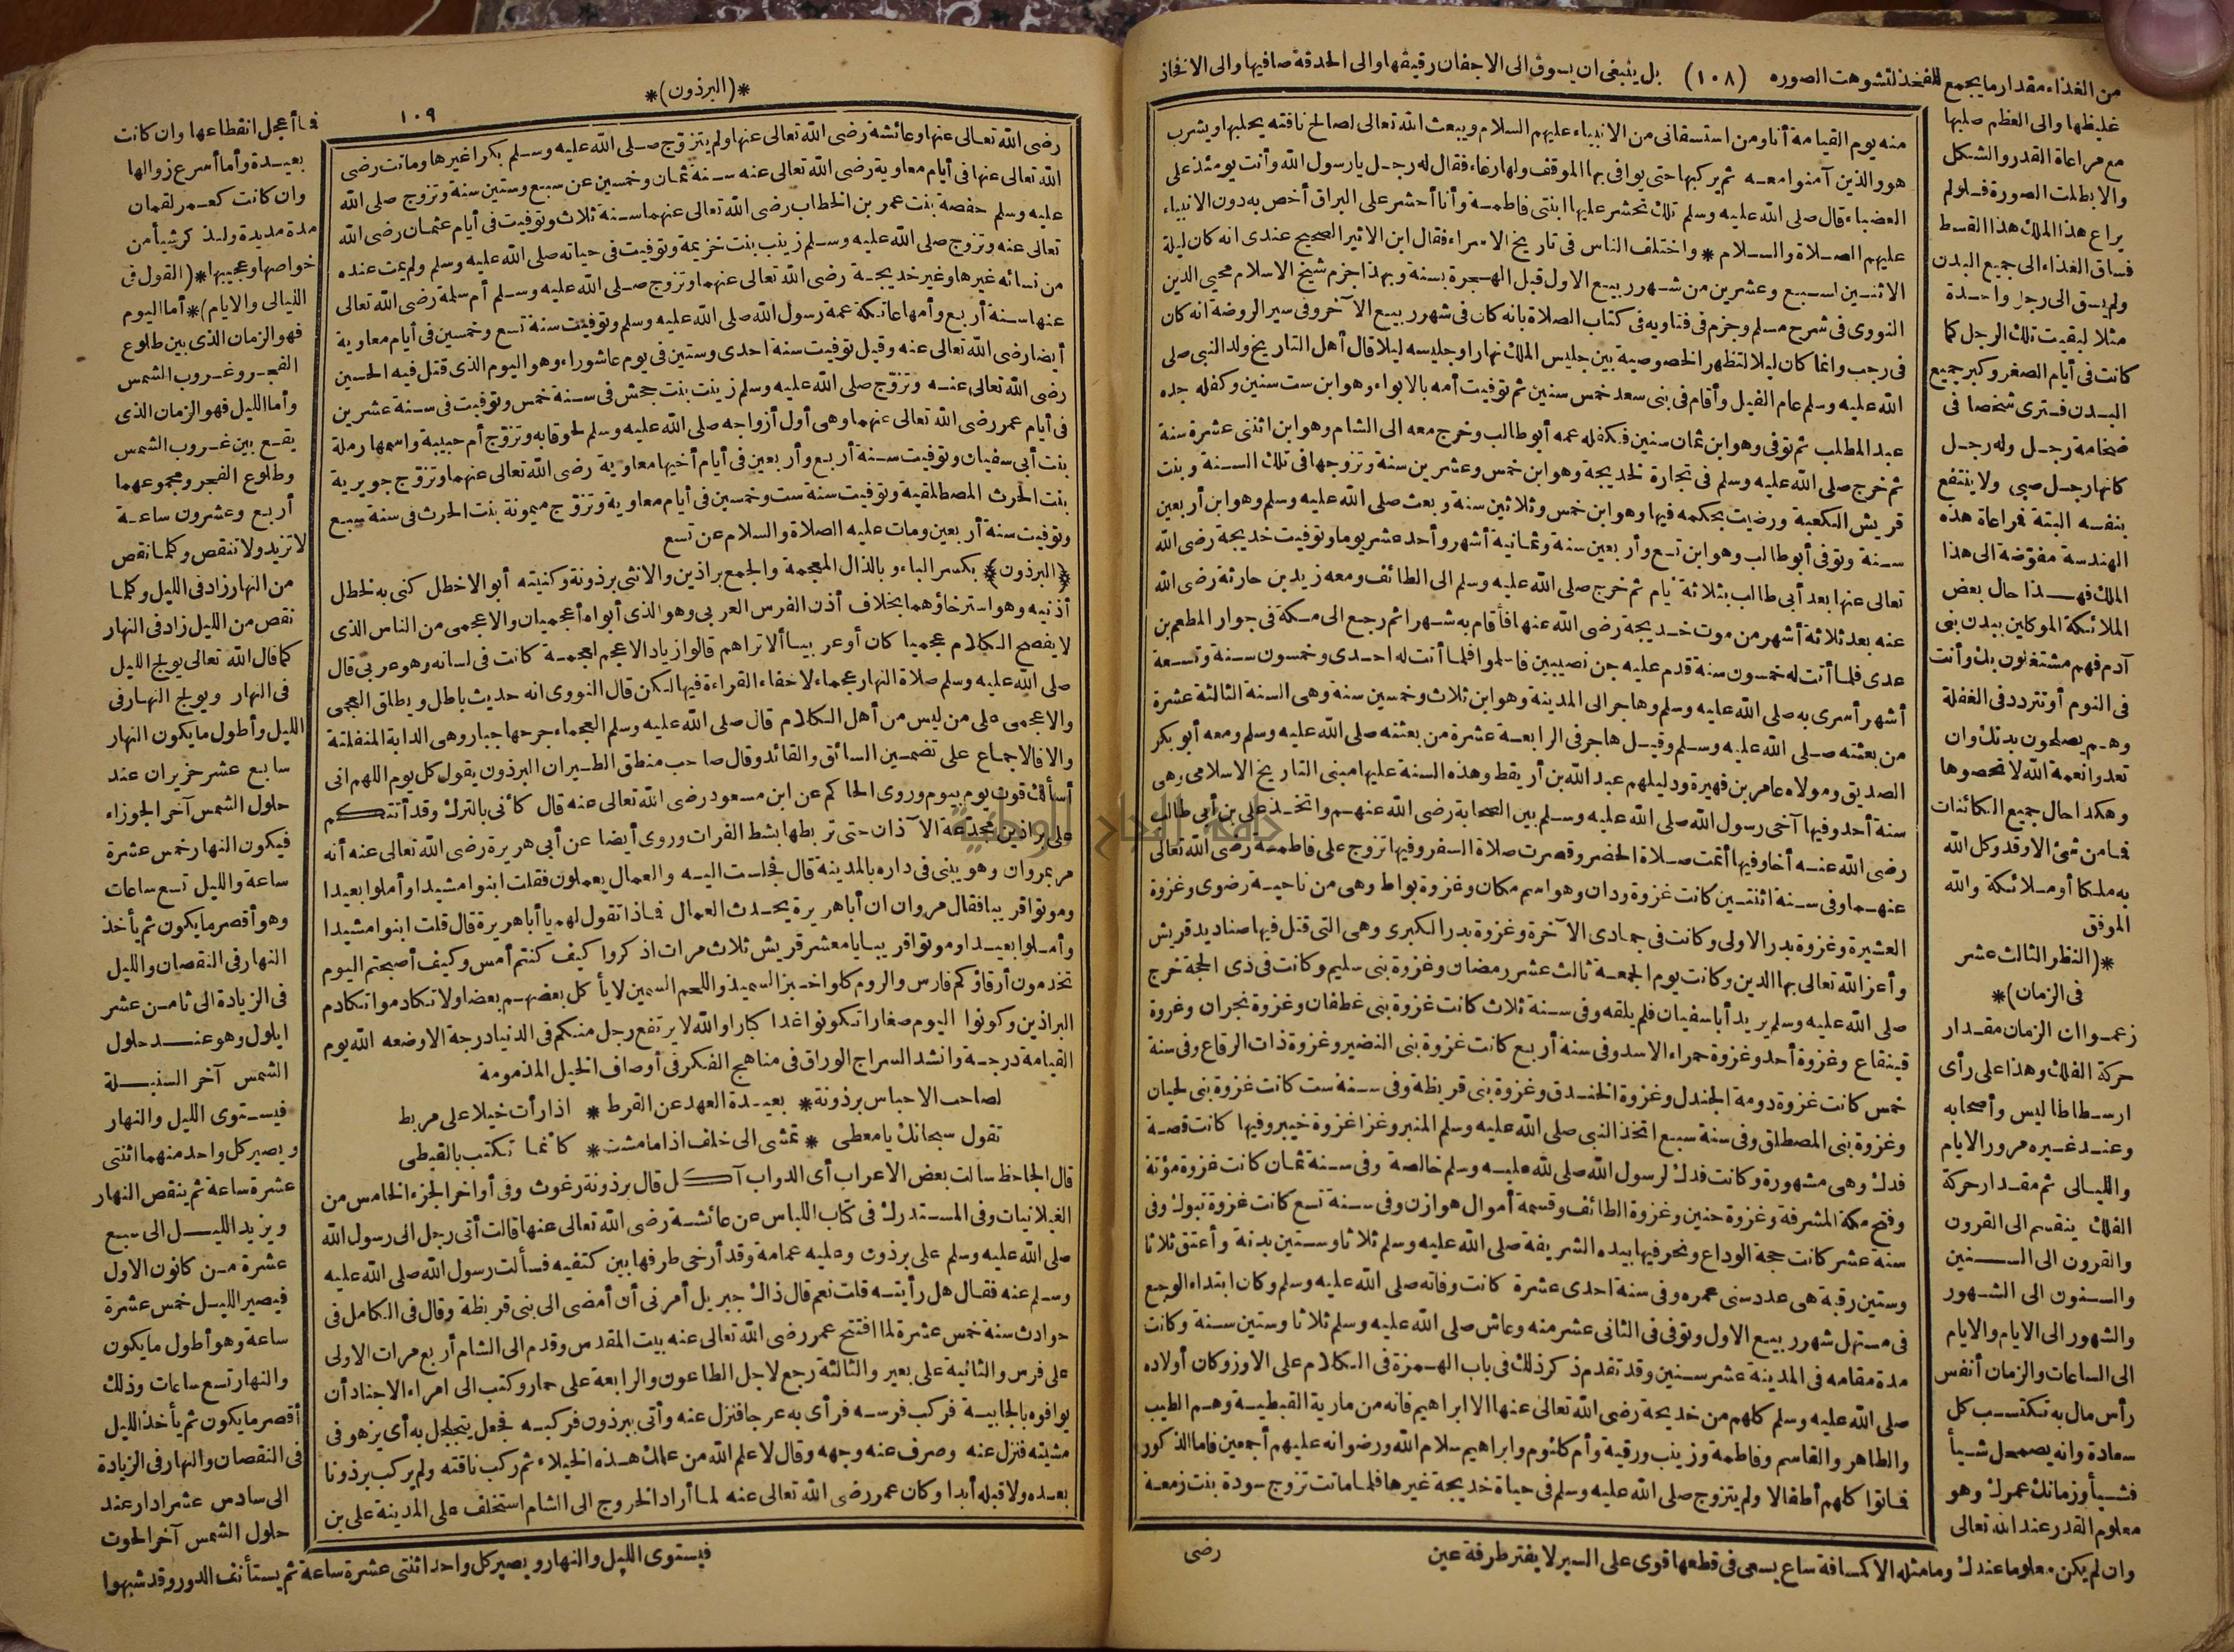 من الغذاء مقدار ما يجمع للفخذ لتشوهت الصوره (١٠٨) بل ينبغي ان يسوق الى الاجفان رقيقها والى الحدقة صافيها والى الافخاذ
غليظها والى العظم صلبها
مع مراعاة القدر والشكل
والا بطلت الصورة فلولم
يراع هذا الملك هذا القسط
فساق الغذاء الى جميع البدن
ولم يسق الى رجل واحدة
مثلا لبقيت تلك الرجل كما
كانت فى أيام الصغر وكبر جميع
البدن فترى شخصا فى
ضخامة رجل وله رجل
كانها رجل صبى ولا ينتفع
بنفسه البتة فراعاة هذه
الهندسة مفوّضة الى هذا
الملك فهذا حال بعض
الملائكة الموكلين ببدن بنى
آدم فهم مشتغلون بك وأنت
فى النوم أو تتردد فى الغفلة
وهم يصلحون بدنك وان
تعدوا نعمة الله لا تحصوها
وهكذا حال جميع الكائنات
فما من شئ الا وقد وكل الله
به ملكا أو ملائكة والله
الموفق
*(النظر الثالث عشر
فى الزمان)*
زعموا ان الزمان مقدار
حركة الفلك وهذا على رأى
ارسطاطاليس وأصحابه
وعند غيره مرور الايام
والليالى ثم مقدار حركة
الفلك ينقسم الى القرون
والقرون الى السنين
والسنون الى الشهور
والشهور الى الايام والايام
الى الساعات والزمان أنفس
رأس مال به تكتسب كل
سعادة وانه يضمحل شيأ
فشيأ وزمانك عمرك وهو
معلوم القدر عند الله تعالى
وان لم يكن معلوما عندك وما مثله الا كمسافة ساع يسعى فى قطعها قوى على السير لا يفتر طرفة عين
منه يوم القيامة أنا ومن استسقانى من الانبياء عليهم السلام ويبعث الله تعالى لصالح ناقته يحلبها ويشرب
هو والذين آمنوا معه ثم يركبها حتى يوافى بها الموقف ولها رغاء فقال له رجل يا رسول الله وأنت يومئذ على
العضباء قال صلى الله عليه وسلم تلك تحشر عليها ابنتى فاطمة وأنا أحشر على البراق أخص به دون الانبياء
عليهم الصلاة والسلام * واختلف الناس فى تاريخ الاسراء فقال ابن الاثير الصحيح عندى انه كان ليلة
الاثنين لسبع وعشرين من شهر ربيع الاول قبل الهجرة بسنة وبهذا جزم شيخ الاسلام محيي الدين
النووى فى شرح مسلم وجزم فى فتاويه فى كتاب الصلاة بانه كان فى شهر ربيع الآخر وفى سير الروضة انه كان
فى رجب وانما كان ليلا لتظهر الخصوصية بين جليس الملك نهارا وجليسه ليلا قال أهل التاريخ ولد النبى صلى
الله عليه وسلم عام الفيل وأقام فى بنى سعد خمس سنين ثم توفيت أمه بالابواء وهو ابن ست سنين وكفله جده
عبد المطلب ثم توفى وهو ابن ثمان سنين فكفله عمه أبو طالب وخرج معه الى الشام وهو ابن اثنتى عشرة سنة
ثم خرج صلى الله عليه وسلم فى تجارة لخديجة وهو ابن خمس وعشرين سنة وتزوجها فى تلك السنة وبنت
قريش الكعبة ورضيت بحكمه فيها وهو ابن خمس وثلاثين سنة وبعث صلى الله عليه وسلم وهو ابن أربعين
سنة وتوفى أبو طالب وهو ابن تسع وأربعين سنة وثمانية أشهر وأحد عشر يوما وتوفيت خديجة رضى الله
تعالى عنها بعد أبى طالب بثلاثة أيام ثم خرج صلى الله عليه وسلم الى الطائف ومعه زيد بن حارثة رضى الله
عنه بعد ثلاثة أشهر من موت خديجة رضى الله عنها فأقام به شهرا ثم رجع الى مكة فى جوار المطعم بن
عدى فلما أتت له خمسون سنة قدم عليه جن نصيبين فاسلموا فلما أتت له احدى وخمسون سنة وتسعة
أشهر أسرى به صلى الله عليه وسلم وهاجر الى المدينة وهو ابن ثلاث وخمسين سنة وهى السنة الثالثة عشرة
من بعثته صلى الله عليه وسلم وقيل هاجر فى الرابعة عشرة من بعثته صلى الله عليه وسلم ومعه أبو بكر
الصديق ومولاه عامر بن فهيرة ودليلهم عبد الله بن أريقط وهذه السنة عليها مبنى التاريخ الاسلامى وهى
سنة أحد وفيها آخى رسول الله صلى الله عليه وسلم بين الصحابة رضى الله عنهم واتخذ على بن أبى طالب
رضى الله عنه أخا وفيها أتمت صلاة الحضر وقصرت صلاة السفر وفيها تزوج على فاطمة رضى الله تعالى
عنهما وفى سنة اثنتين كانت غزوة ودان وهو اسم مكان وغزوة بواط وهى من ناحية رضوى وغزوة
العشيرة وغزوة بدر الاولى وكانت فى جمادى الآخرة وغزوة بدر الكبرى وهى التى قتل فيها صناديد قريش
وأعز الله تعالى بها الدين وكانت يوم الجمعة ثالث عشر رمضان وغزوة بنى سليم وكانت فى ذى الحجة خرج
صلى الله عليه وسلم يريد أبا سفيان فلم يلقه وفى سنة ثلاث كانت غزوة بنى غطفان وغزوة نجران وغزوة
قينقاع وغزوة أحد وغزوة حمراء الاسد وفى سنة أربع كانت غزوة بنى النضير وغزوة ذات الرقاع وفى سنة
خمس كانت غزوة دومة الجندل وغزوة الخندق وغزوة بنى قريظة وفى سنة ست كانت غزوة بنى لحيان
وغزوة بنى المصطلق وفى سنة سبع اتخذ النبى صلى الله عليه وسلم المنبر وغزا غزوة خيبر وفيها كانت قصة
فدك وهى مشهورة وكانت فدك لرسول الله صلى الله عليه وسلم خالصة وفى سنة ثمان كانت غزوة مؤتة
وفتح مكة المشرفة وغزوة حنين وغزوة الطائف وقسمة أموال هوازن وفى سنة تسع كانت غزوة تبوك وفى
سنة عشر كانت حجة الوداع ونحر فيها بيده الشريفة صلى الله عليه وسلم ثلاثا وستين بدنة وأعتق ثلاثا
وستين رقبة هى عدد سنى عمره وفى سنة احدى عشرة كانت وفاته صلى الله عليه وسلم وكان ابتداء الوجع
فى مستهل شهر ربيع الاول وتوفى فى الثانى عشر منه وعاش صلى الله عليه وسلم ثلاثا وستين سنة وكانت
مدة مقامه فى المدينة عشر سنين وقد تقدم ذكر ذلك فى باب الهمزة فى الكلام على الاوز وكان أولاده
صلى الله عليه وسلم كلهم من خديجة رضى الله تعالى عنها الا ابراهيم فانه من مارية القبطية وهم الطيب
والطاهر والقاسم وفاطمة وزينب ورقية وأم كلثوم وابراهيم سلام الله ورضوانه عليهم أجمعين فاما الذكور
فماتوا كلهم أطفالا ولم يتزوج صلى الله عليه وسلم فى حياة خديجة غيرها فلما ماتت تزوج سودة بنت زمعة
رضى
*(البرذون)*
١٠٩
رضى الله تعالى عنها وعائشة رضى الله تعالى عنها ولم يتزوج صلى الله عليه وسلم بكرا غيرها وماتت رضى
الله تعالى عنها فى أيام معاوية رضى الله تعالى عنه سنة ثمان وخمسين عن سبع وستين سنة وتزوج صلى الله
عليه وسلم حفصة بنت عمر بن الخطاب رضى الله تعالى عنهما سنة ثلاث وتوفيت فى أيام عثمان رضى الله
تعالى عنه وتزوج صلى الله عليه وسلم زينب بنت خزيمة وتوفيت فى حياته صلى الله عليه وسلم ولم يمت عنده
من نسائه غيرها وغير خديجة رضى الله تعالى عنهما وتزوج صلى الله عليه وسلم أم سلمة رضى الله تعالى
عنها سنة أربع وأمها عاتكة عمة رسول الله صلى الله عليه وسلم وتوفيت سنة تسع وخمسين فى أيام معاوية
أيضا رضى الله تعالى عنه وقيل توفيت سنة احدى وستين فى يوم عاشوراء وهو اليوم الذى قتل فيه الحسين
رضى الله تعالى عنه وتزوّج صلى الله عليه وسلم زينب بنت جحش فى سنة خمس وتوفيت فى سنة عشرين
فى أيام عمر رضى الله تعالى عنهما وهى أول أزواجه صلى الله عليه وسلم لحوقا به وتزوّج أم حبيبة واسمها رملة
بنت أبى سفيان وتوفيت سنة أربع وأربعين فى أيام أخيها معاوية رضى الله تعالى عنهما وتزوّج جويرية
بنت الحرث المصطلقية وتوفيت سنة ست وخمسين فى أيام معاوية وتزوّج ميمونة بنت الحرث فى سنة سبع
وتوفيت سنة أربعين ومات عليه الصلاة والسلام عن تسع
﴿البرذون﴾ بكسر الباء وبالذال المعجمة والجمع براذين والانثى برذونة وكنيته أبو الاخطل كنى به لخطل
أذنيه وهو استرخاؤهما بخلاف أذن الفرس العربى وهو الذى أبواه أعجميان والاعجمى من الناس الذى
لا يفصح الكلام عجميا كان أو عربيا ألا تراهم قالوا زياد الاعجم لعجمة كانت فى لسانه وهو عربى قال
صلى الله عليه وسلم صلاة النهار عجماء لاخفاء القراءة فيها لكن قال النووى انه حديث باطل ويطلق العجمى
والاعجمى على من ليس من أهل الكلام قال صلى الله عليه وسلم العجماء جرحها جبار وهى الدابة المنفلتة
والا فالاجماع على تضمين السائق والقائد وقال صاحب منطق الطير ان البرذون يقول كل يوم اللهم انى
أسألك قوت يوم بيوم وروى الحاكم عن ابن مسعود رضى الله تعالى عنه قال كأنى بالترك وقد أتتكم
على براذين مجدّعة الآذان حتى تربطها بشط الفرات وروى أيضا عن أبى هريرة رضى الله تعالى عنه أنه
مر بمروان وهو يبنى فى داره بالمدينة قال فجلست اليه والعمال يعملون فقلت ابنوا مشيدا وأملوا بعيدا
وموتوا قريبا فقال مروان ان أبا هريرة يحدث العمال فماذا تقول لهم يا أبا هريرة قال قلت ابنوا مشيدا
وأملوا بعيدا وموتوا قريبا يا معشر قريش ثلاث مرات اذكروا كيف كنتم أمس وكيف أصبحتم اليوم
تخدمون أرقاؤكم فارس والروم كلوا خبز السميذ واللحم السمين لا يأكل بعضهم بعضا ولا تكادموا تكادم
البراذين وكونوا اليوم صغارا تكونوا غدا كبارا والله لا يرتفع رجل منكم فى الدنيا درجة الا وضعه الله يوم
القيامة درجة وانشد السراج الوراق فى مناهج الفكر فى أوصاف الخيل المذمومة
لصاحب الاحباس برذونة * بعيدة العهد عن القرط * اذا رأت خيلا على مربط
تقول سبحانك يا معطى * تمشى الى خلف اذا ما مشت * كأنما تكتب بالقبطى
قال الجاحظ سالت بعض الاعراب أى الدواب آكل قال برذونة رغوث وفى أواخر الجزء الخامس من
الغيلانيات وفى المستدرك فى كتاب اللباس عن عائشة رضى الله تعالى عنها قالت أتى رجل الى رسول الله
صلى الله عليه وسلم على برذون وعليه عمامة وقد أرخى طرفها بين كتفيه فسألت رسول الله صلى الله عليه
وسلم عنه فقال هل رأيته قلت نعم قال ذاك جبريل أمرنى أن أمضى الى بنى قريظة وقال فى الكامل فى
حوادث سنة خمس عشرة لما افتتح عمر رضى الله تعالى عنه بيت المقدس وقدم الى الشام أربع مرات الاولى
على فرس والثانية على بعير والثالثة رجع لاجل الطاعون والرابعة على حمار وكتب الى امراء الاجناد أن
يوافوه بالجابية فركب فرسه فرأى به عرجا فنزل عنه وأتى ببرذون فركبه فجعل يتجلجل به أى يزهو فى
مشيته فنزل عنه وصرف عنه وجهه وقال لا علم الله من علمك هذه الخيلاء ثم ركب ناقته ولم يركب برذونا
بعده ولا قبله أبدا وكان عمر رضى الله تعالى عنه لما أراد الخروج الى الشام استخلف على المدينة على بن
فما أعجل انقطاعها وان كانت
بعيدة وأما أسرع زوالها
وان كانت كعمر لقمان
مدة مديدة ولنذكر شيأ من
خواصها وعجيبها *(القول فى
الليالى والايام)* أما اليوم
فهو الزمان الذى بين طلوع
الفجر وغروب الشمس
وأما الليل فهو الزمان الذى
يقع بين غروب الشمس
وطلوع الفجر ومجموعهما
أربع وعشرون ساعة
لا تزيد ولا تنقص وكلما نقص
من النهار زاد فى الليل وكلما
نقص من الليل زاد فى النهار
كما قال الله تعالى يولج الليل
فى النهار ويولج النهار فى
الليل وأطول ما يكون النهار
سابع عشر حزيران عند
حلول الشمس آخر الجوزاء
فيكون النهار خمس عشرة
ساعة والليل تسع ساعات
وهو أقصر ما يكون ثم يأخذ
النهار فى النقصان والليل
فى الزيادة الى ثامن عشر
ايلول وهو عند حلول
الشمس آخر السنبلة
فيستوى الليل والنهار
ويصير كل واحد منهما اثنتى
عشرة ساعة ثم ينقص النهار
ويزيد الليل الى سبع
عشرة من كانون الاول
فيصير الليل خمس عشرة
ساعة وهو أطول ما يكون
والنهار تسع ساعات وذلك
أقصر ما يكون ثم يأخذ الليل
فى النقصان والنهار فى الزيادة
الى سادس عشر ادار عند
حلول الشمس آخر الحوت
فيستوى الليل والنهار ويصير كل واحد اثنتى عشرة ساعة ثم يستأنف الدور وقد شبهوا
جامعة النجاح الوطنية